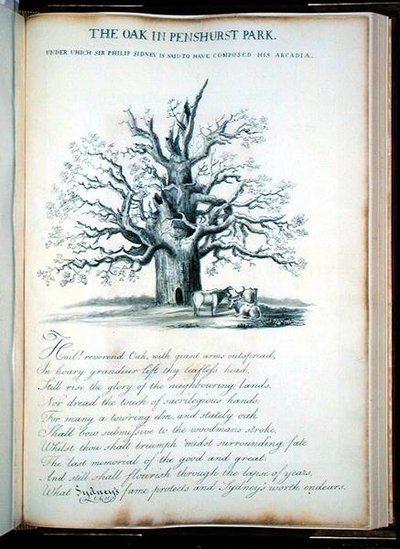 THE OAK IN PENSHURST PARK.
UNDER WHICH SIR PHILIP SIDNEY IS SAID TO HAVE COMPOSED HIS ARCADIA.
Hail! reverend Oak, with giant arms outspread,
In hoary grandeur lift thy leafless head,
Still rise the glory of the neighbouring lands,
Nor dread the touch of sacrilegious hands.
For many a tow'ring elm, and stately oak
Shall bow submissive to the woodman's stroke,
Whilst thou shalt triumph 'midst surrounding fate
The last memorial of the good and great.
And still shall flourish through the lapse of years,
What Sydney's fame protects and Sydney's worth endears.